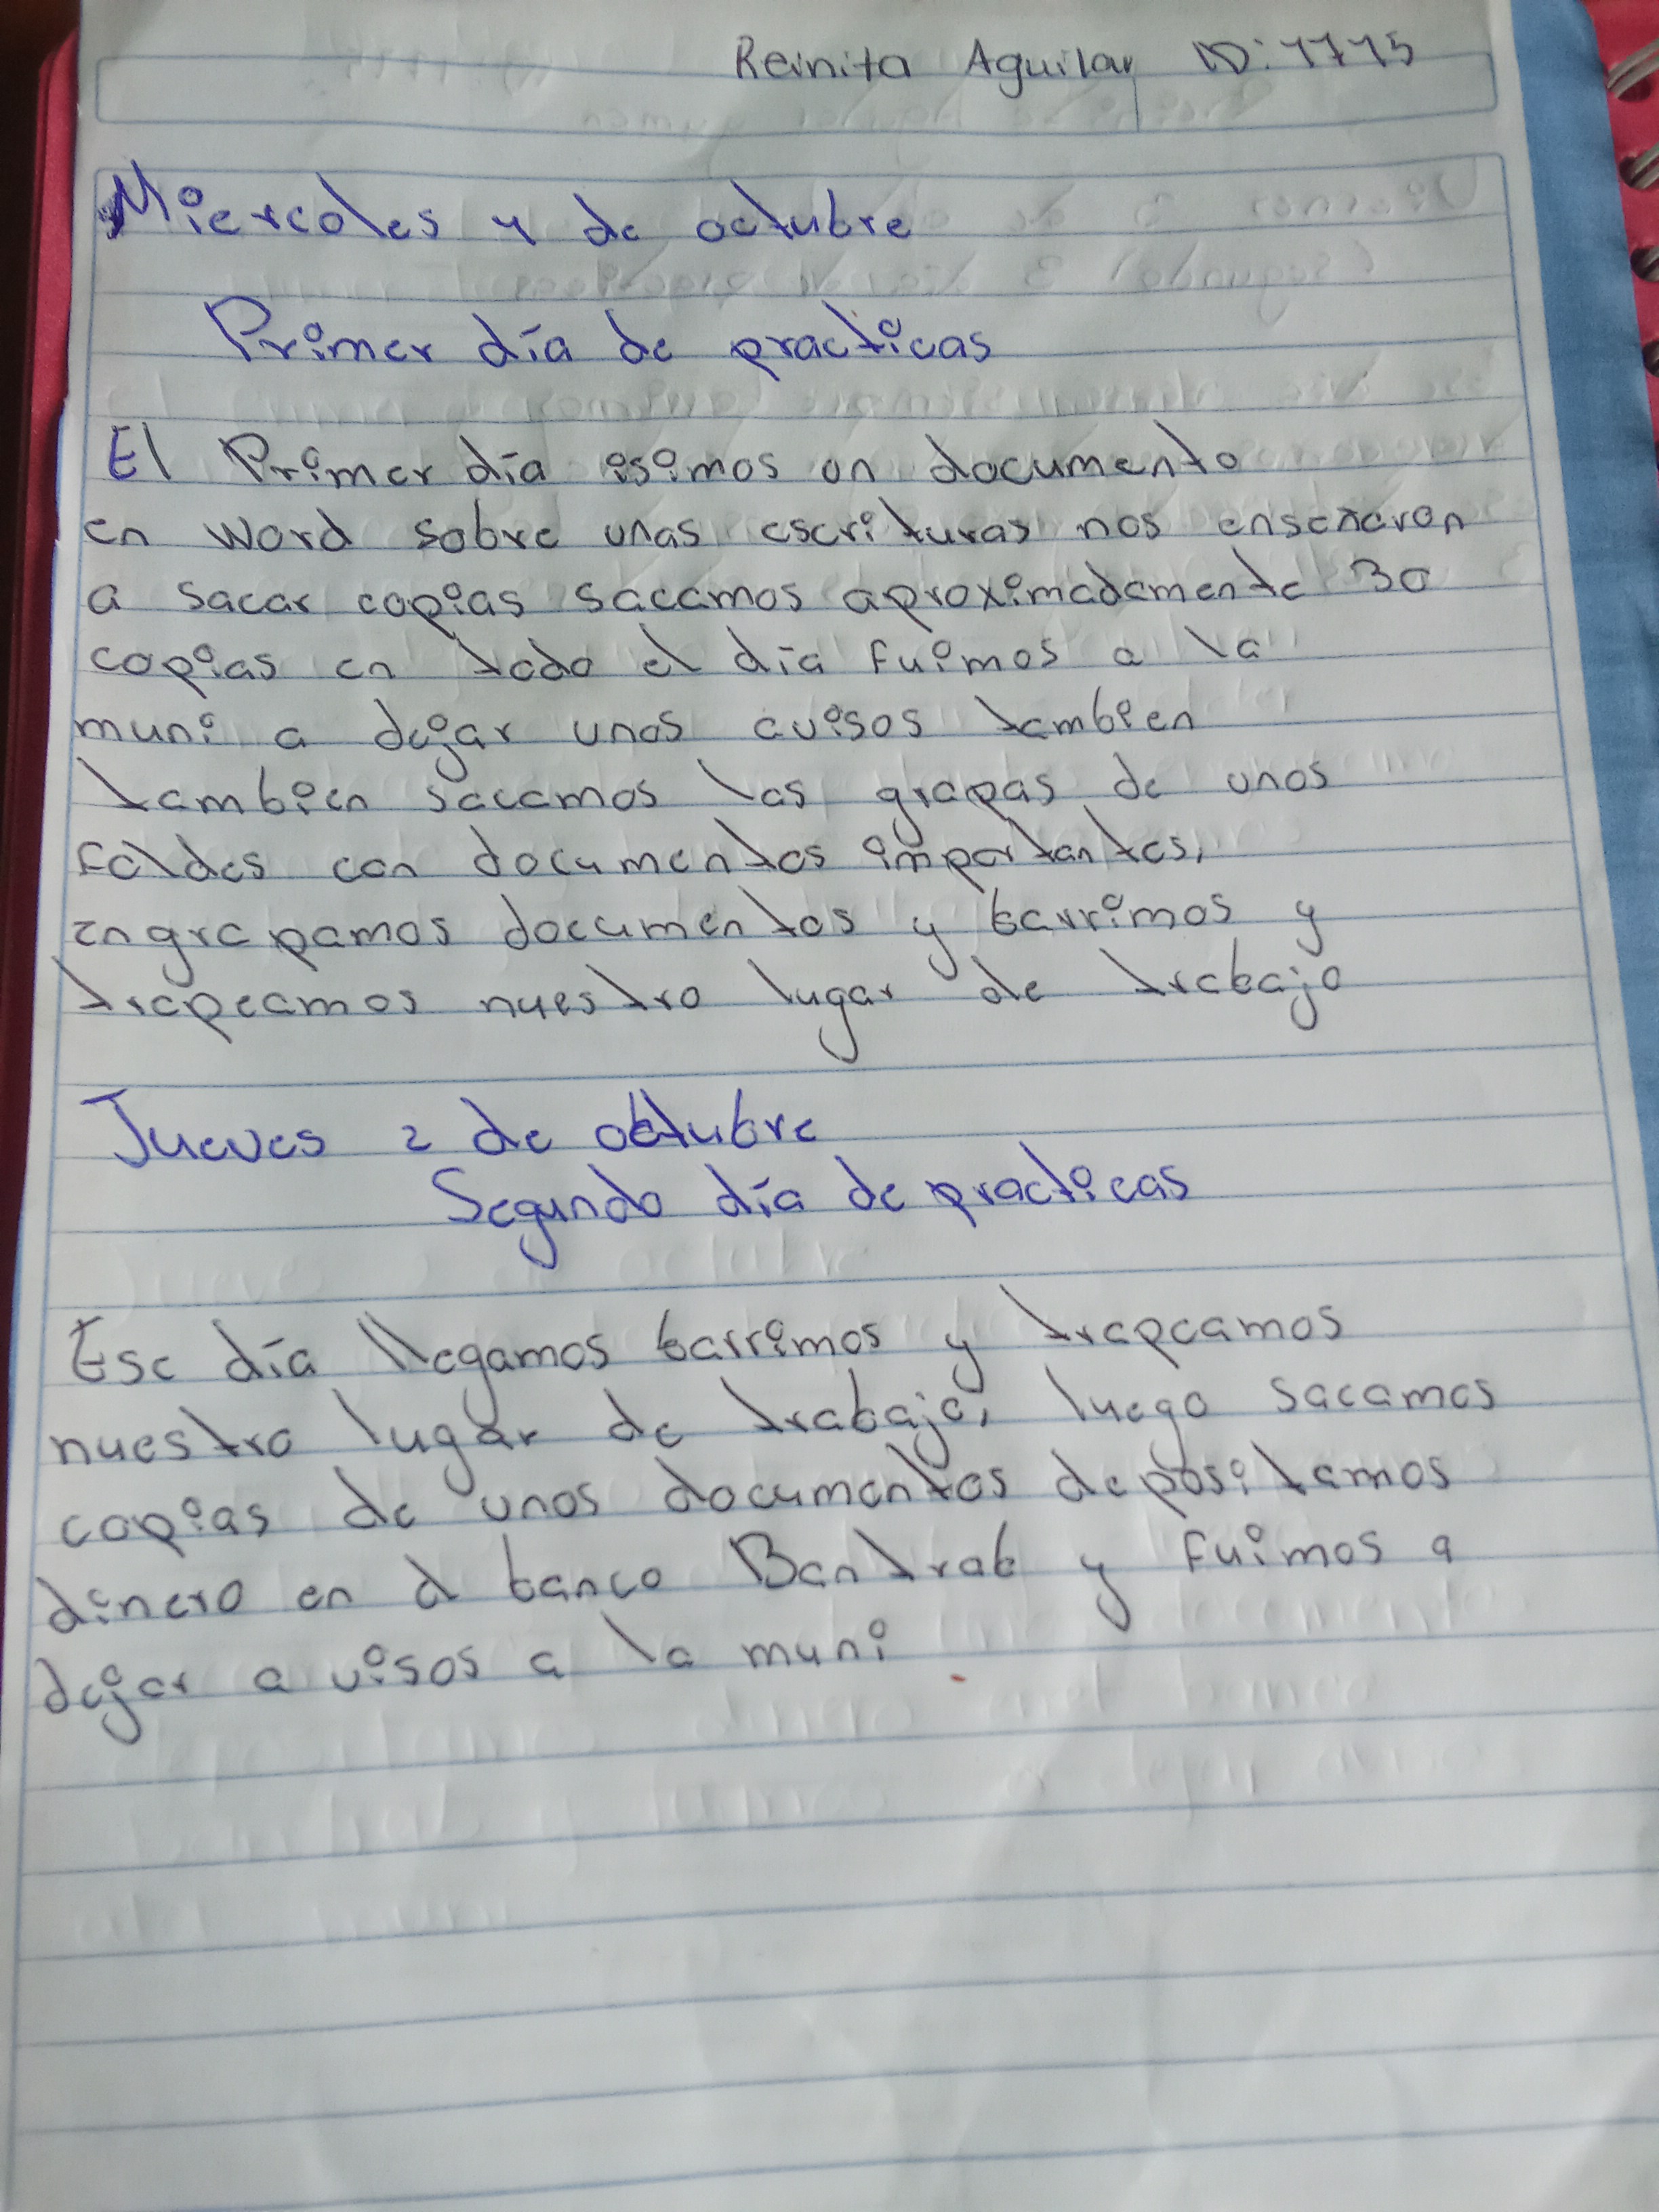 Reinita Aguilar ID: 1715
Miercoles 1 de octubre
Primer día de practicas
El Primer día isimos un documento
en word sobre unas escrituras nos enseñaron
a sacar copias sacamos aproximadamente 30
copias en todo el día fuimos a la
muni a dejar unos avisos tambien
tambien sacamos las grapas de unos
foldes con documentos importantes,
engrapamos documentos y barrimos y
trapeamos nuestro lugar de trabajo
Jueves 2 de octubre
Segundo día de practicas
Ese día llegamos barrimos y trapeamos
nuestro lugar de trabajo, luego sacamos
copias de unos documentos depositamos
dinero en el banco Bantrab y fuimos a
dejar avisos a la muni